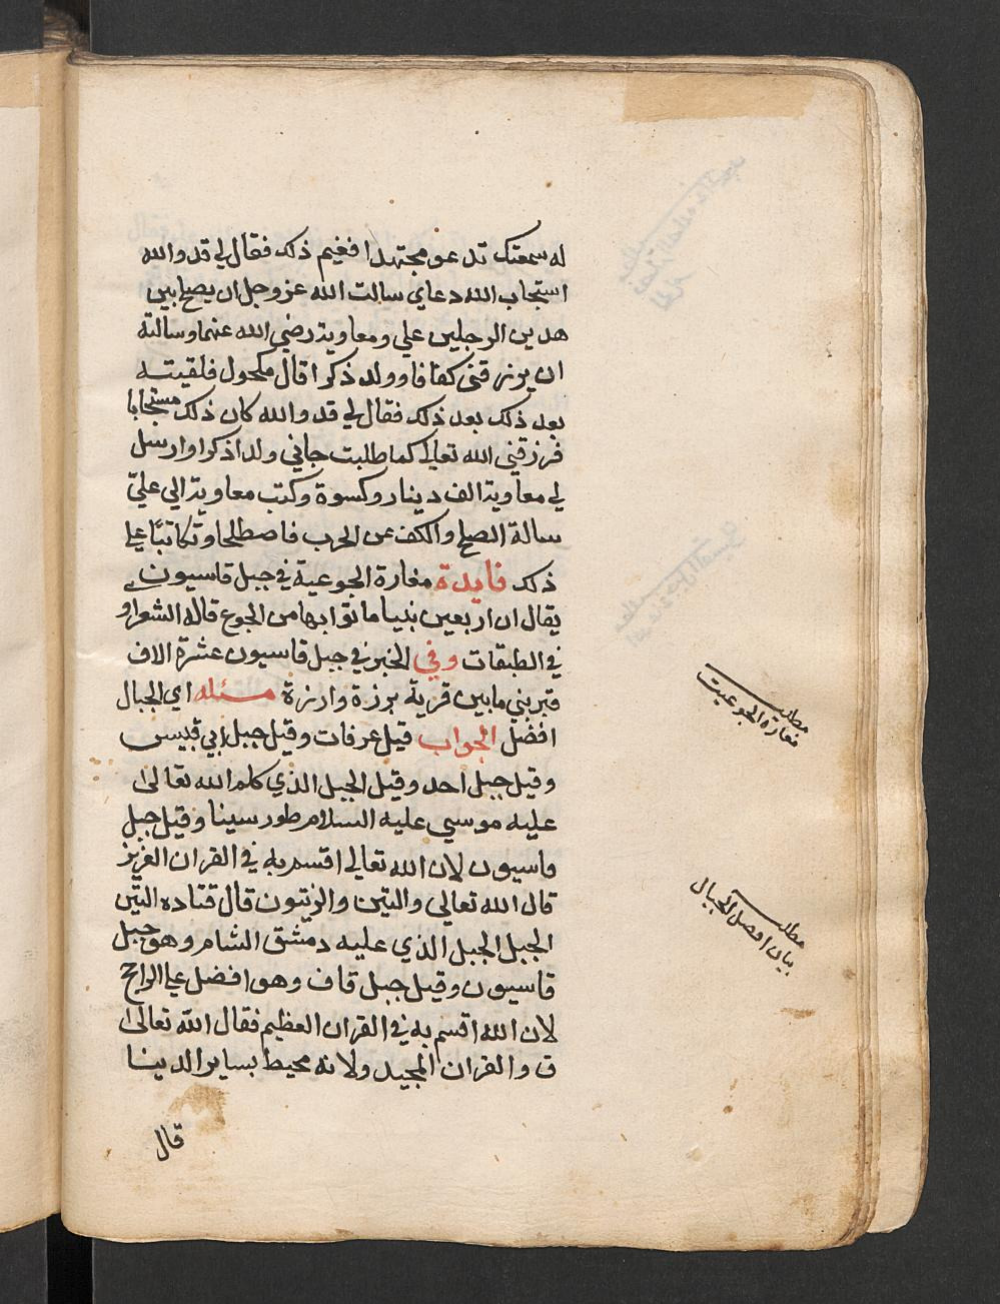 له سمعتك تدعو مجتهدا ففيم ذلك فقال لي قد والله
استجاب الله دعاي سالت الله عز وجل ان يصلح بين
هذين الرجلين علي ومعاوية رضي الله عنهما وسالته
ان يرزقني كفافا وولد ذكرا قال مكحول فلقيته
بعد ذلك بعد ذلك فقال لي قد والله كان ذلك مستجابا
فرزقني الله تعالى كما طلبت جاني ولدا ذكرا وارسل
لي معاوية الف دينار وكسوة وكتب معاوية الي علي
سالة الصلح والكف عن الحرب فاصطلحا وتكاتبا على
ذلك فايدة مغارة الجوعية في جبل قاسيون
يقال ان اربعين نبيا ماتوا بها من الجوع قاله الشعراوي
في الطبقات وفي الخبر في جبل قاسيون عشرة الاف
قبر نبي ما بين قرية برزة وارزة مسئله اي الجبال
افضل الجواب قيل عرفات وقيل جبل ابي قبيس
وقيل جبل احد وقيل الجبل الذي كلم الله تعالى
عليه موسي عليه السلام طور سينا وقيل جبل
قاسيون لان الله تعالي اقسم به في القران العزيز
قال الله تعالي والتين والزيتون قال قتاده التين
الجبل الجبل الذي عليه دمشق الشام وهو جبل
قاسيون وقيل جبل قاف وهو افضل على الراجح
لان الله اقسم به في القران العظيم فقال الله تعالى
ق والقران المجيد ولانه محيط بساير الدينا
قال
مطلب
مغارة الجوعيت
مطلب
بيان افضل الجبال